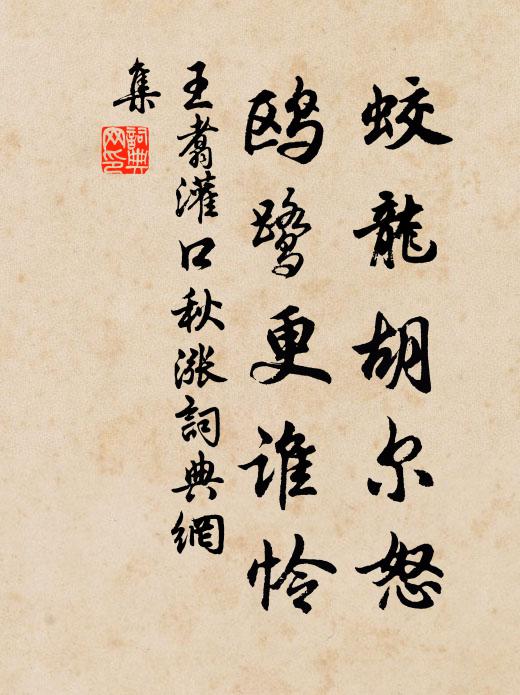 蛟龍胡尔怒
鸥鹭更谁怜
王翥灌口秋漲詞典網
集
詞典
网印